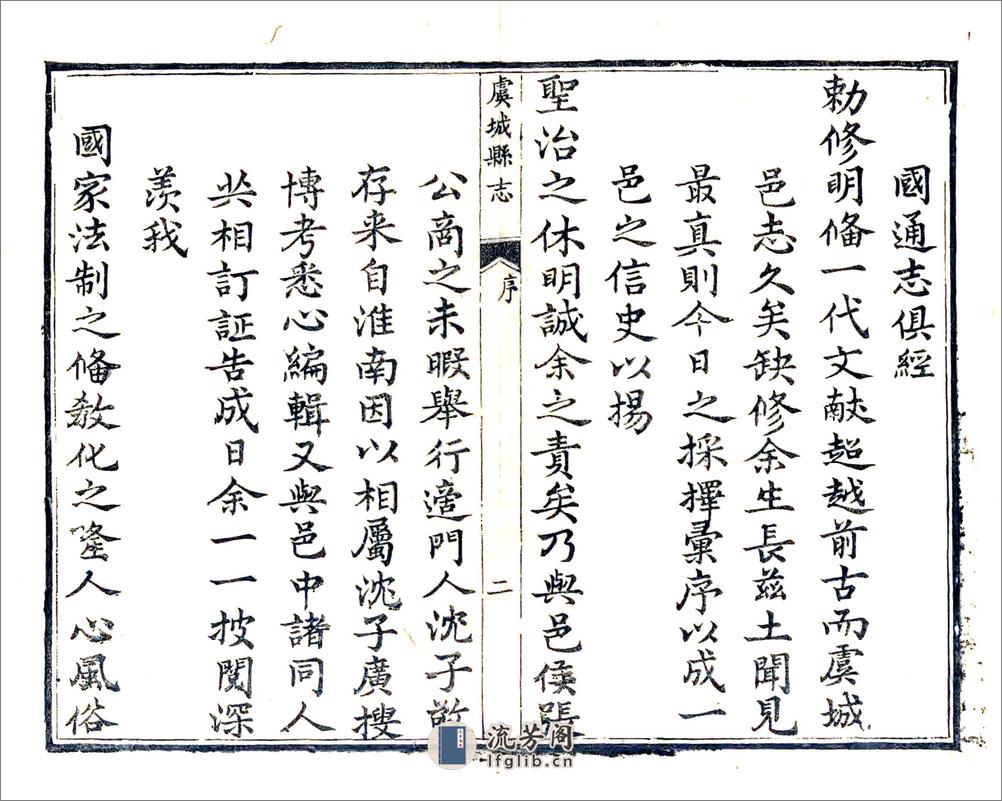 國通志俱經
勅修明俻一代文献超越前古而虞城
邑志久矣缺修余生長兹土聞見
最真則今日之採擇彙序以成一
邑之信史以揚
聖治之休明誠余之責矣乃與邑侯張
虞城縣志
序
二
公商之未暇舉行適門人沈子
存来自淮南因以相屬沈子廣搜
博考悉心編輯又與邑中諸同人
共相訂証告成日余一一披閱深
羨我
國家法制之俻教化之隆人心風俗
流芳阁
lfglib.cn